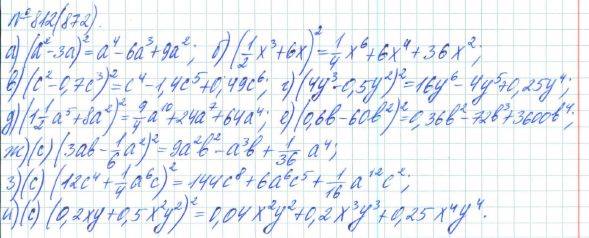 № 812(872).
а) (a²-3a)²=a⁴-6a³+9a²; б) (1/2 x³+6x)²=1/4 x⁶+6x⁴+36x²;
в) (c²-0,7c³)²=c⁴-1,4c⁵+0,49c⁶; г) (4y³-0,5y²)²=16y⁶-4y⁵+0,25y⁴;
д) (1 1/2 a⁵+8a²)²=9/4 a¹⁰+24a⁷+64a⁴; е) (0,6b-60b²)²=0,36b²-72b³+3600b⁴;
ж) (с) (3ab-1/6 a²)²=9a²b²-a³b+1/36 a⁴;
з) (с) (12c⁴+1/4 a⁶c)²=144c⁸+6a⁶c⁵+1/16 a¹²c²;
и) (с) (0,2xy+0,5x²y²)²=0,04x²y²+0,2x³y³+0,25x⁴y⁴.